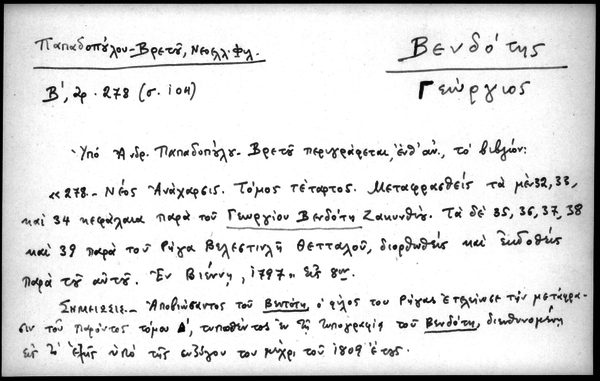 Παπαδοπούλου-Βρετοῦ, Νεοελλ. Φιλ.
Βενδότης
Β', ἀρ. 278 (σ. 104)
Γεώργιος
Ὑπό Ἀνδρ. Παπαδοπούλου-Βρετοῦ περιγράφεται, ἐνθ' ἀν., τό βιβλίον:
«278.- Νέος Ἀνάχαρσις. Τόμος τέταρτος. Μεταφρασθείς τά μέν 32, 33,
καί 34 κεφάλαια παρά τοῦ Γεωργίου Βενδότη Ζακυνθίου. Τά δέ 35, 36, 37, 38
καί 39 παρά τοῦ Ρήγα Βελεστινλῆ Θετταλοῦ, διορθωθείς καί ἐκδοθείς
παρά τοῦ αὐτοῦ. Ἐν Βιέννῃ, 1797» εἰς 8ον.
Σημείωσις.- Ἀποβιώσαντος τοῦ Βεντότη, ὁ φίλος του Ρήγας ἐτελείωσε τήν μετάφρα-
σιν τοῦ παρόντος τόμου Δ', τυπωθέντος ἐν τῇ τυπογραφίᾳ τοῦ Βενδότη, διευθυνομένῃ
εἰς τό ἑξῆς ὑπό τῆς συζύγου του μέχρι τοῦ 1809 ἔτους.